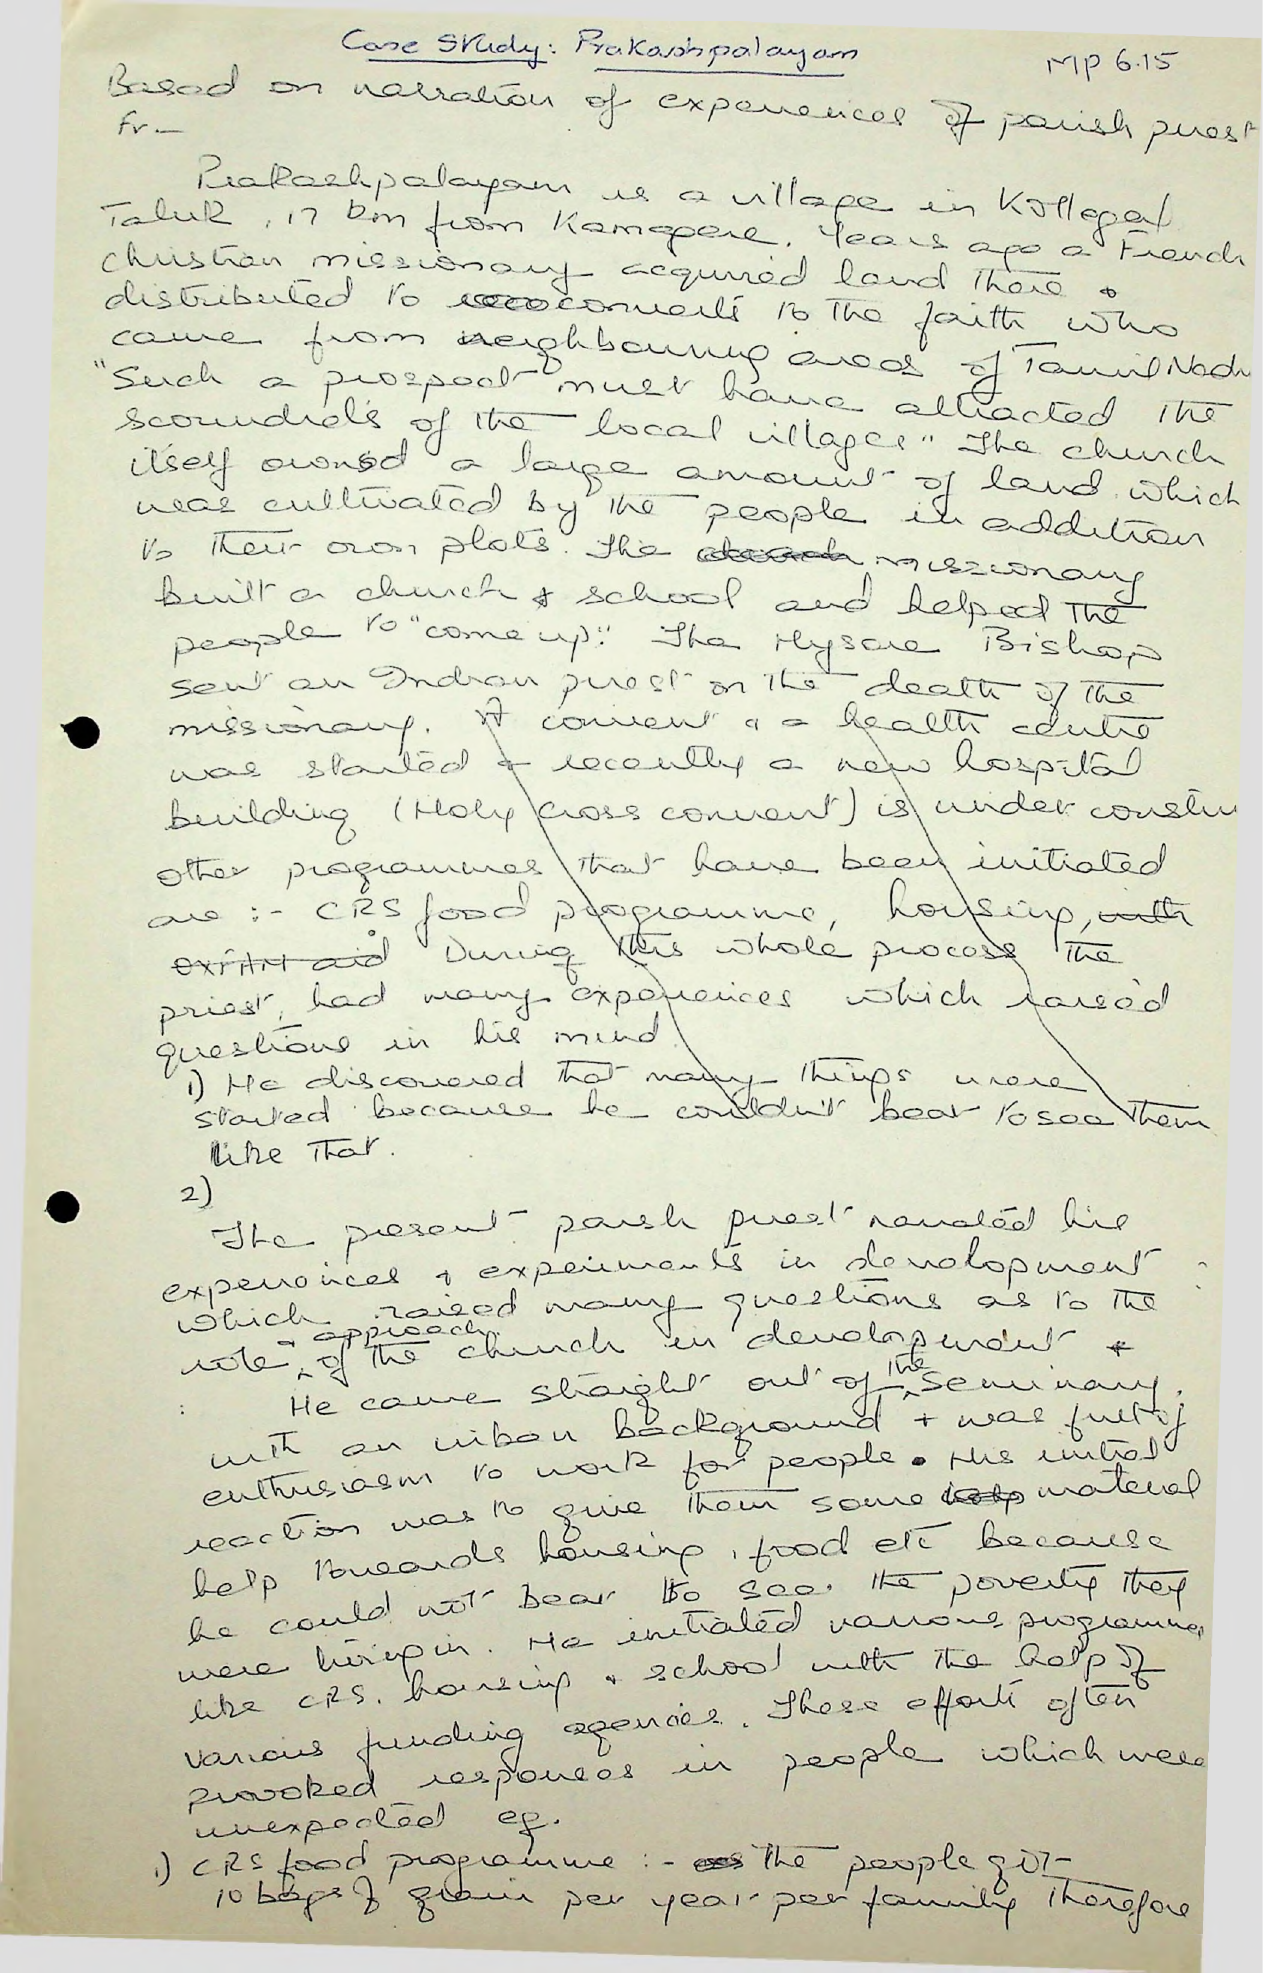 Case Study: Prakashpalayam
MP 6.15
Based on narration of experiences of parish priest
Fr —
Prakashpalayam is a village in Kollegal
Taluk, 17 km from Kamagere. Years ago a French
christian missionary acquired land there &
distributed to converts to the faith who
came from neighbouring areas of Tamil Nadu
"Such a prospect must have attracted the
scoundrels of the local villages" The church
itself owned a large amount of land which
was cultivated by the people in addition
to their own plots. The church missionary
built a church & school and helped the
people to "come up". The Mysore Bishop
sent an Indian priest on the death of the
missionary. A convent & a health centre
was started & recently a new hospital
building (Holy Cross convent) is under constru
other programmes that have been initiated
are :- CRS food programme, housing, with
OXFAM aid During this whole process the
priest, had many experiences which raised
questions in his mind.
1) He discovered that many things were
started because he couldn't bear to see them
like that.
2)
The present parish priest narrated his
experiences & experiments in development
which raised many questions as to the
role & approach of the church in development
He came straight out of the seminary,
with an urban background & was full of
enthusiasm to work for people. His initial
reaction was to give them some help material
help towards housing, food etc because
he could not bear to see the poverty they
were living in. He initiated various programmes
like CRS, housing & school with the help of
various funding agencies. These efforts often
provoked responses in people which were
unexpected eg.
1) CRS food programme :- the people got
10 bags of grain per year per family therefore